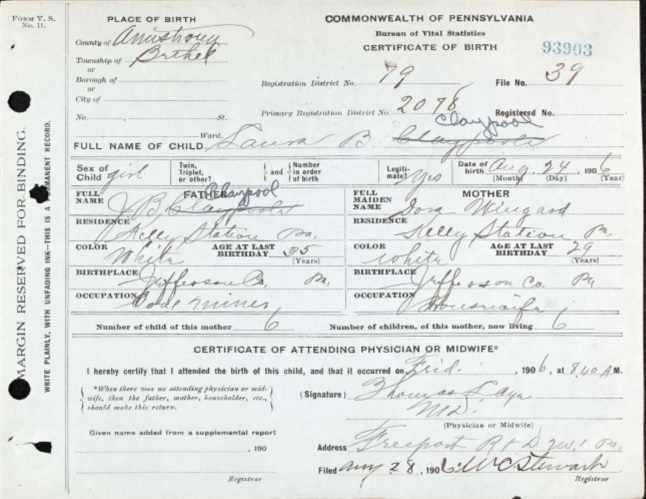 FORM V. S. No. 11.
PLACE OF BIRTH
COMMONWEALTH OF PENNSYLVANIA
Bureau of Vital Statistics
CERTIFICATE OF BIRTH
93903
County of Armstrong
Township of Bethel
or
Borough of
or
City of
Registration District No. 79
File No. 39
No. St.
Primary Registration District No. 2078
Registered No.
Ward.
Claypool
FULL NAME OF CHILD Laura B. Claypoole
Sex of Child girl
Twin, Triplet, or other?
and Number in order of birth
Legitimate? Yes
Date of birth Aug 24 1906
(Month) (Day) (Year)
FATHER
FULL NAME J B Claypoole
Claypool
RESIDENCE Kelly Station Pa.
COLOR White
AGE AT LAST BIRTHDAY 35
(Years)
BIRTHPLACE Jefferson Co. Pa.
OCCUPATION Coal Miner
MOTHER
FULL MAIDEN NAME Wingard
RESIDENCE Kelly Station Pa.
COLOR White
AGE AT LAST BIRTHDAY 29
(Years)
BIRTHPLACE Jefferson Co Pa
OCCUPATION Housewife
Number of child of this mother 6
Number of children, of this mother, now living 6
CERTIFICATE OF ATTENDING PHYSICIAN OR MIDWIFE*
I hereby certify that I attended the birth of this child, and that it occurred on Frid. 1906, at 8.40 A.M.
*When there was no attending physician or midwife, then the father, mother, householder, etc., should make this return.
(Signature) Thomas
M.D.
(Physician or Midwife)
Given name added from a supplemental report
190
Registrar
Address Freeport Pa.
Filed Aug 28, 1906 McStewart
Registrar
MARGIN RESERVED FOR BINDING.
WRITE PLAINLY, WITH UNFADING INK—THIS IS A PERMANENT RECORD.